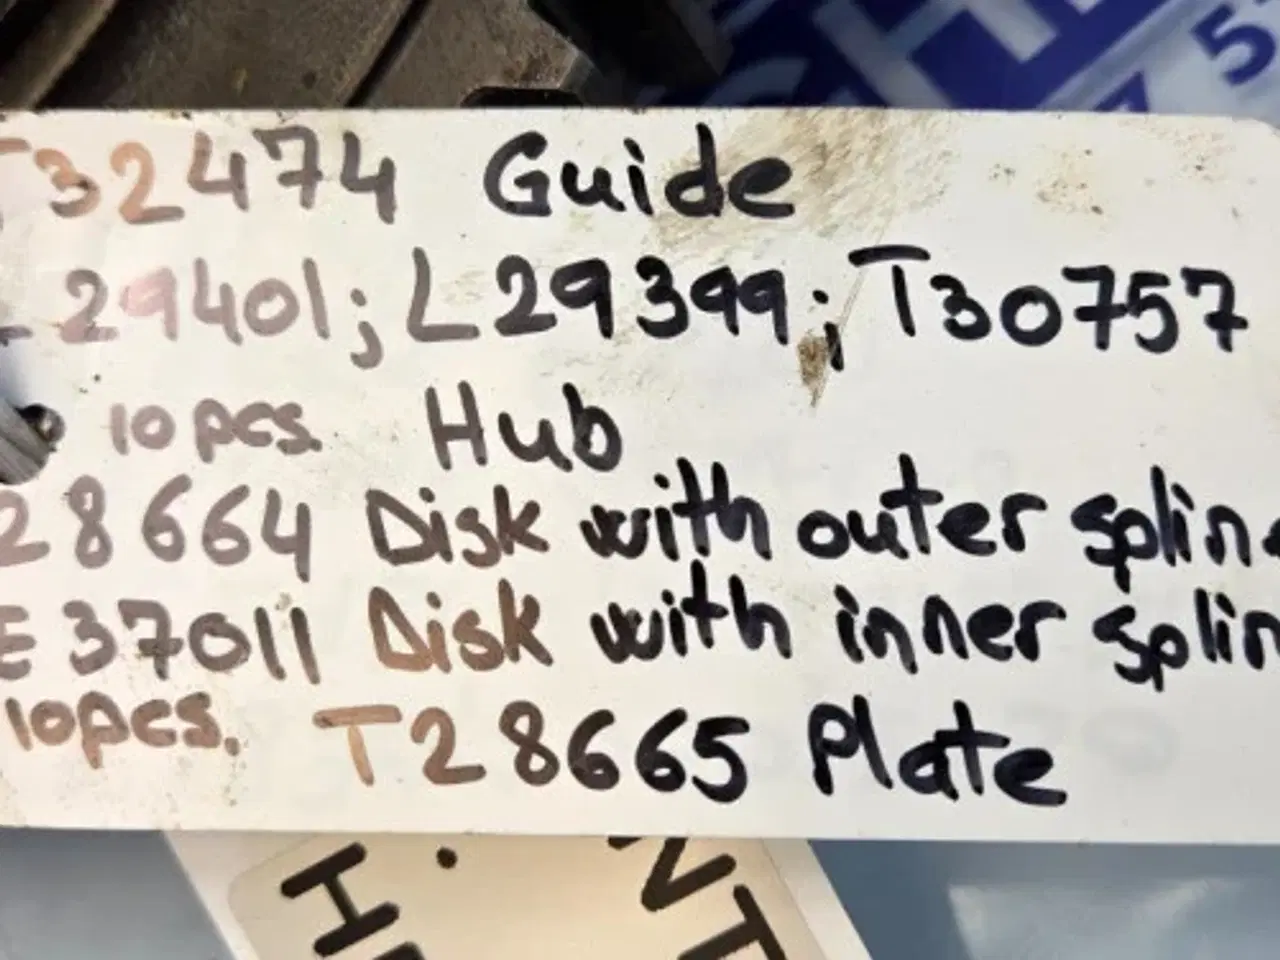 T32474 Guide
L29401; L29399; T30757
10 pcs. Hub
28664 Disk with outer spline
E37011 Disk with inner splin
10pcs. T28665 Plate